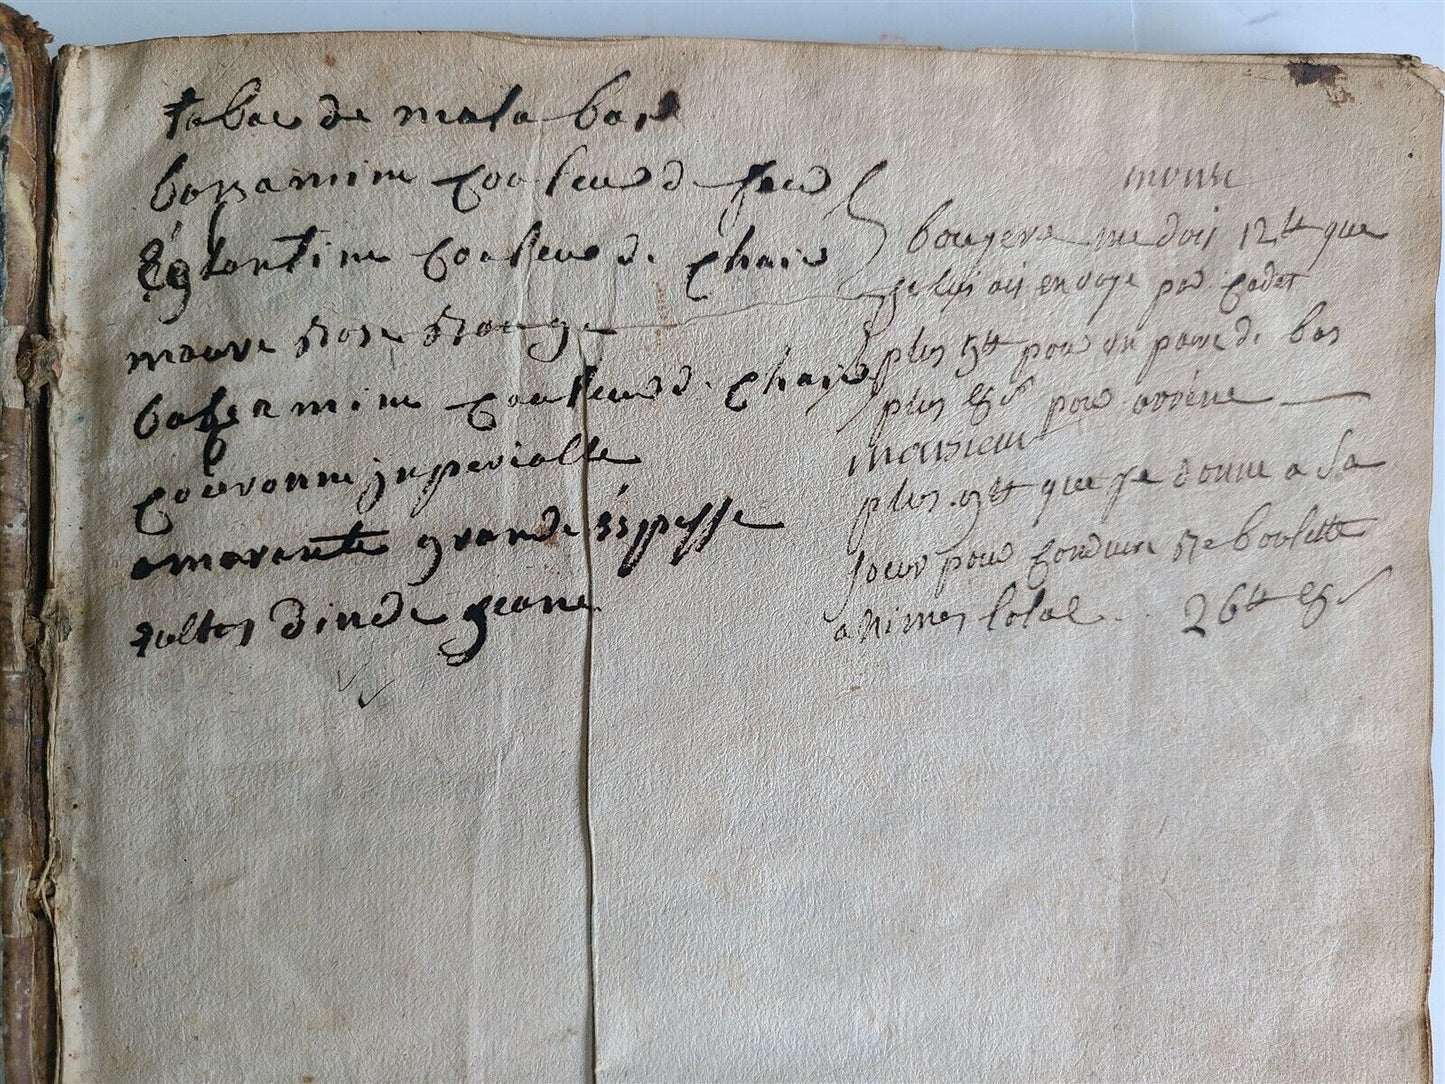 tabac de malabar
balzamine couleur de feu
Églantine couleur de chair
mauve rose rouge
balzamine couleur de chair
couronne jnperialle
amarante grande éspesse
d'inde jeane
monsr
bougere me dois 12tt que
je luis ais envoye par cadet
plus 5tt pour un paire de bas
plus pour
monsieur
plus que je donne a sa
soeur pour conduire boulette
a nimes total 26tt